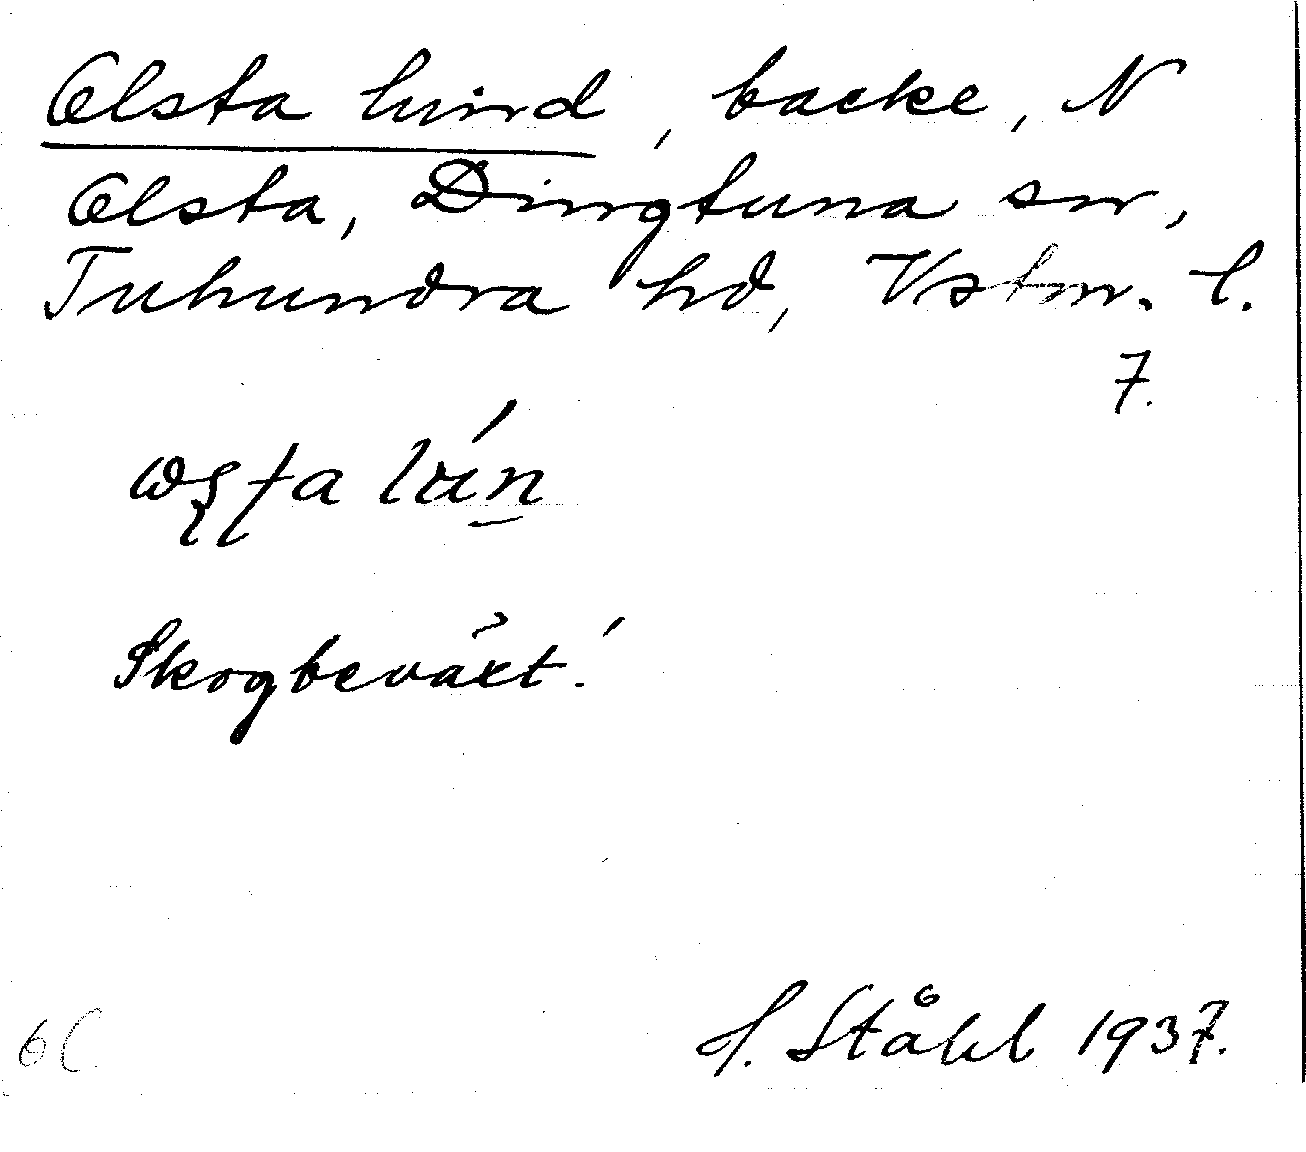 Olsta lund, backe, N
Olsta, Dingtuna sn,
Tuhundra hd, Vstm. l.
7.
Skogbeväxt.
H. Ståhl 1937.
6C